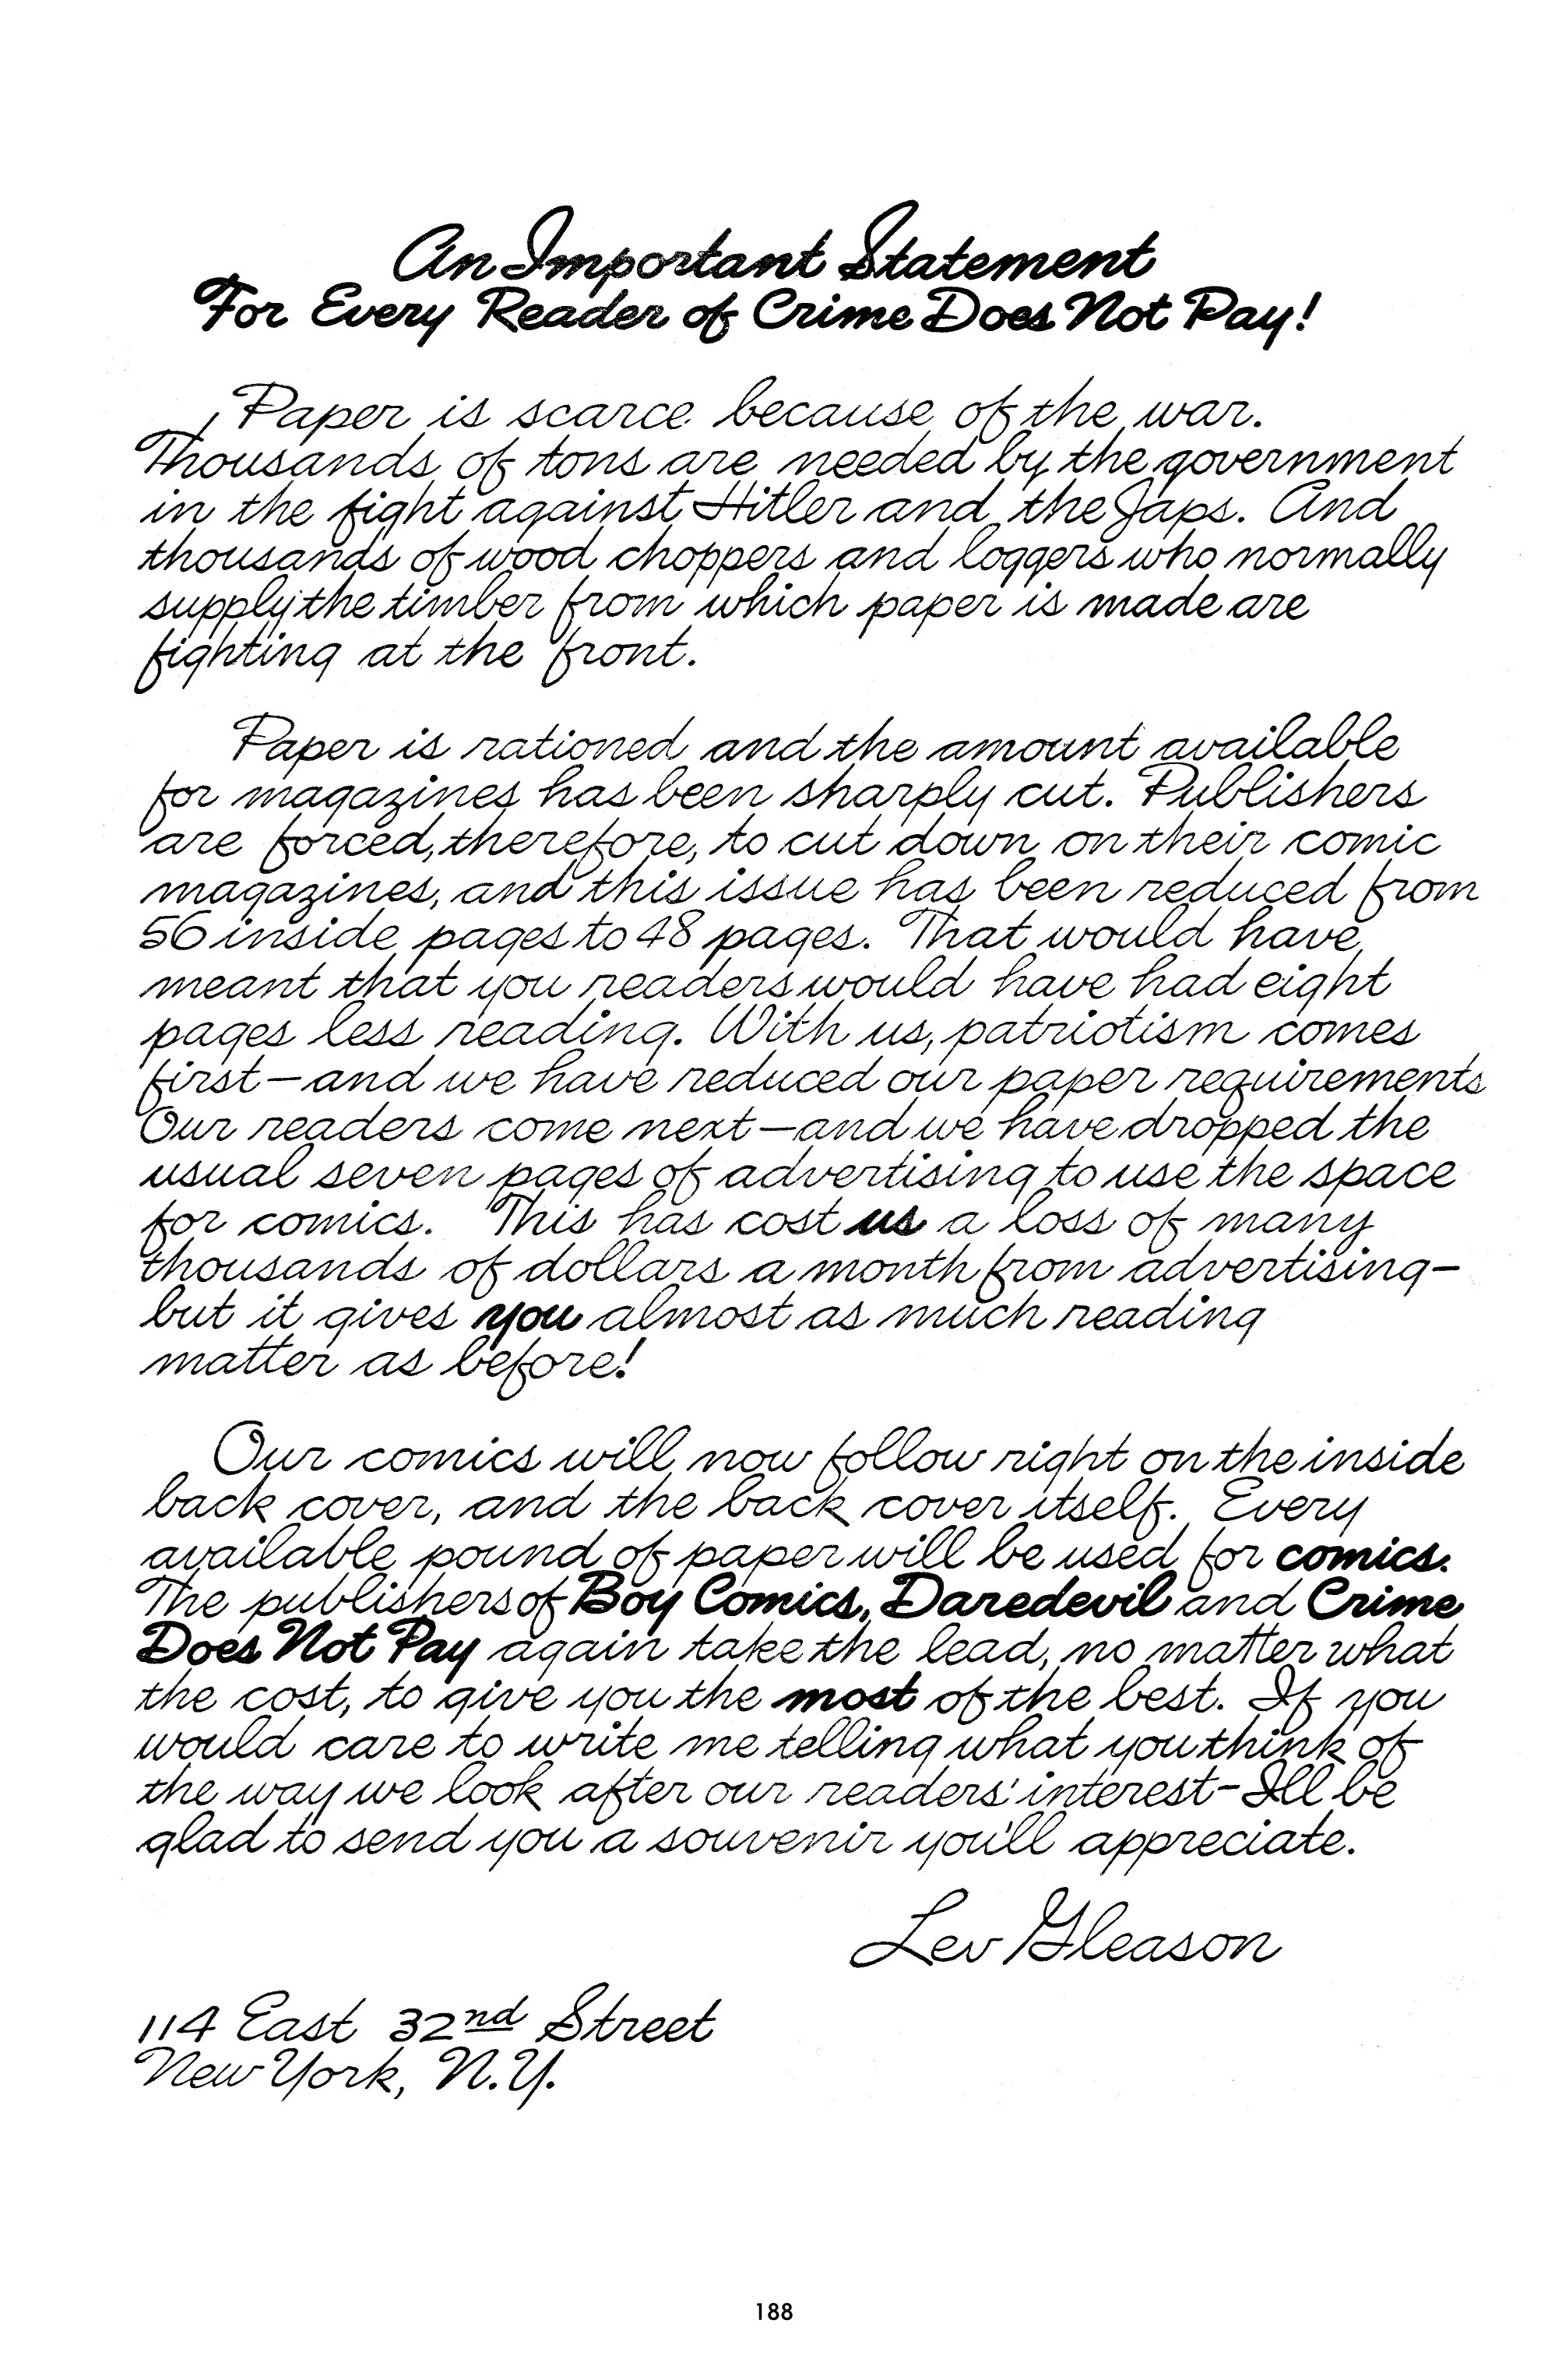 An Important Statement
For Every Reader of Crime Does Not Pay!
Paper is scarce because of the war.
Thousands of tons are needed by the government
in the fight against Hitler and the Japs. And
thousands of wood choppers and loggers who normally
supply the timber from which paper is made are
fighting at the front.
Paper is rationed and the amount available
for magazines has been sharply cut. Publishers
are forced, therefore, to cut down on their comic
magazines, and this issue has been reduced from
56 inside pages to 48 pages. That would have
meant that you readers would have had eight
pages less reading. With us, patriotism comes
first—and we have reduced our paper requirements
Our readers come next—and we have dropped the
usual seven pages of advertising to use the space
for comics. This has cost us a loss of many
thousands of dollars a month from advertising—
but it gives you almost as much reading
matter as before!
Our comics will now follow right on the inside
back cover, and the back cover itself. Every
available pound of paper will be used for comics.
The publishers of Boy Comics, Daredevil and Crime
Does Not Pay again take the lead, no matter what
the cost, to give you the most of the best. If you
would care to write me telling what you think of
the way we look after our readers' interest—I'll be
glad to send you a souvenir you'll appreciate.
Lev Gleason
114 East 32nd Street
New York, N.Y.
188